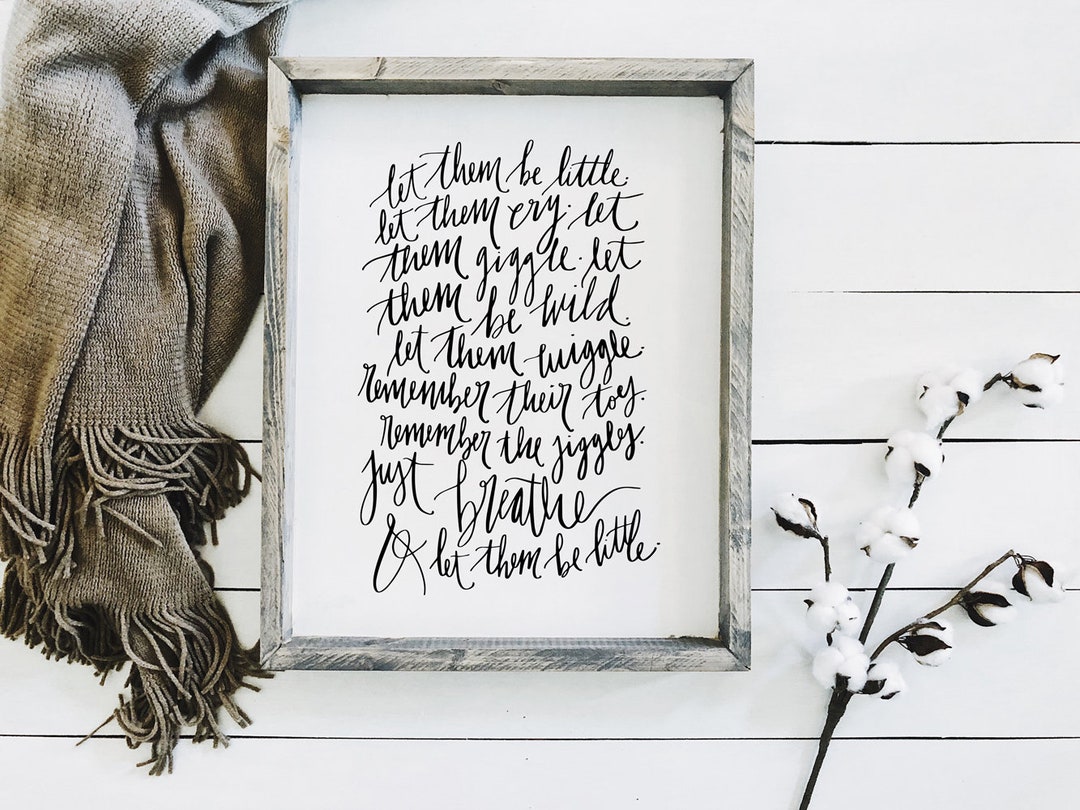 let them be little.
let them cry. let
them giggle. let
them be wild.
let them wiggle.
remember their toes.
remember the jiggles.
just breathe
& let them be little.